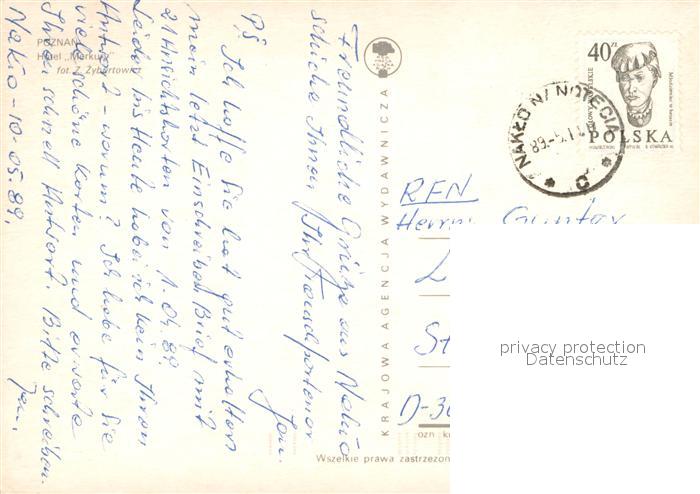 POZNAŃ
Hotel „Merkury"
fot. Z. Żyburtowicz
Freundliche Grüße aus Nakło
schicke Ihnen Ihr Tauschpartner
Jan.
PS Ich hoffe Sie hat gut erhalten
mein letzt Einschreiben Brief mit
21 Ansichtskarten von 1.04.89.
Leider bis Heute habe ich kein Ihren
Antwort - warum? Ich habe für Sie
viel schöne Karten und erwarte
Ihren schnell Antwort. Bitte schreiben.
Nakło - 10-05-89,
Jan.
KRAJOWA AGENCJA WYDAWNICZA
40 zł
POLSKA
NAKŁO N/NOTECIĄ
C
RFN
Herrn Gunter
D-30
Wszelkie prawa zastrzeżon
privacy protection
Datenschutz